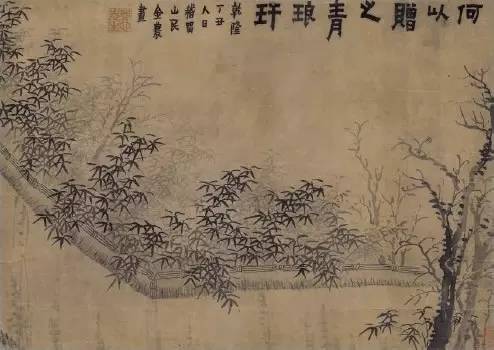 何以贈之青琅玕
乾隆
丁丑
人日
稽留
山民
金農
畫